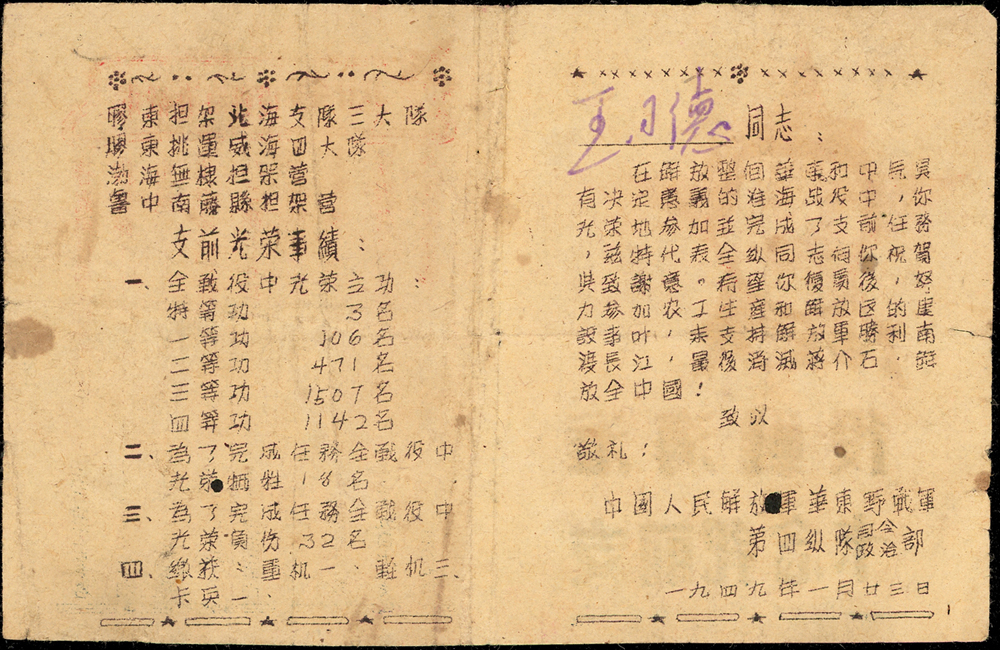 膠東担架北海支隊三大隊
膠東挑運威海四大隊
渤海無棣担架營
魯中南滕縣担架營
支前光荣事績：
一、全戰役中光荣立功：
特等功3名
一等功106名
二等功471名
三等功1507名
四等功1142名
二、為了完成任務全戰役中
光荣牺牲18名
三、為了完成任務全戰役中
光荣負伤32名
四、繳獲：重机一、輕机三、
卡宾一
王日德 同志：
在解放整個華東和中原，具
有決定意義的淮海戰役中，你
光荣地參加並完成了支前任務
，茲特代表全縱同志祝賀
並致謝意。希你後，努
力參加农工生產和後區建
設事，來支持解放軍勝利南
渡長江，最後消滅蔣介石，解
放全中國！
致以
敬礼！
中國人民解放軍華東野戰軍
第四縱隊司令政治部
一九四九年一月廿三日